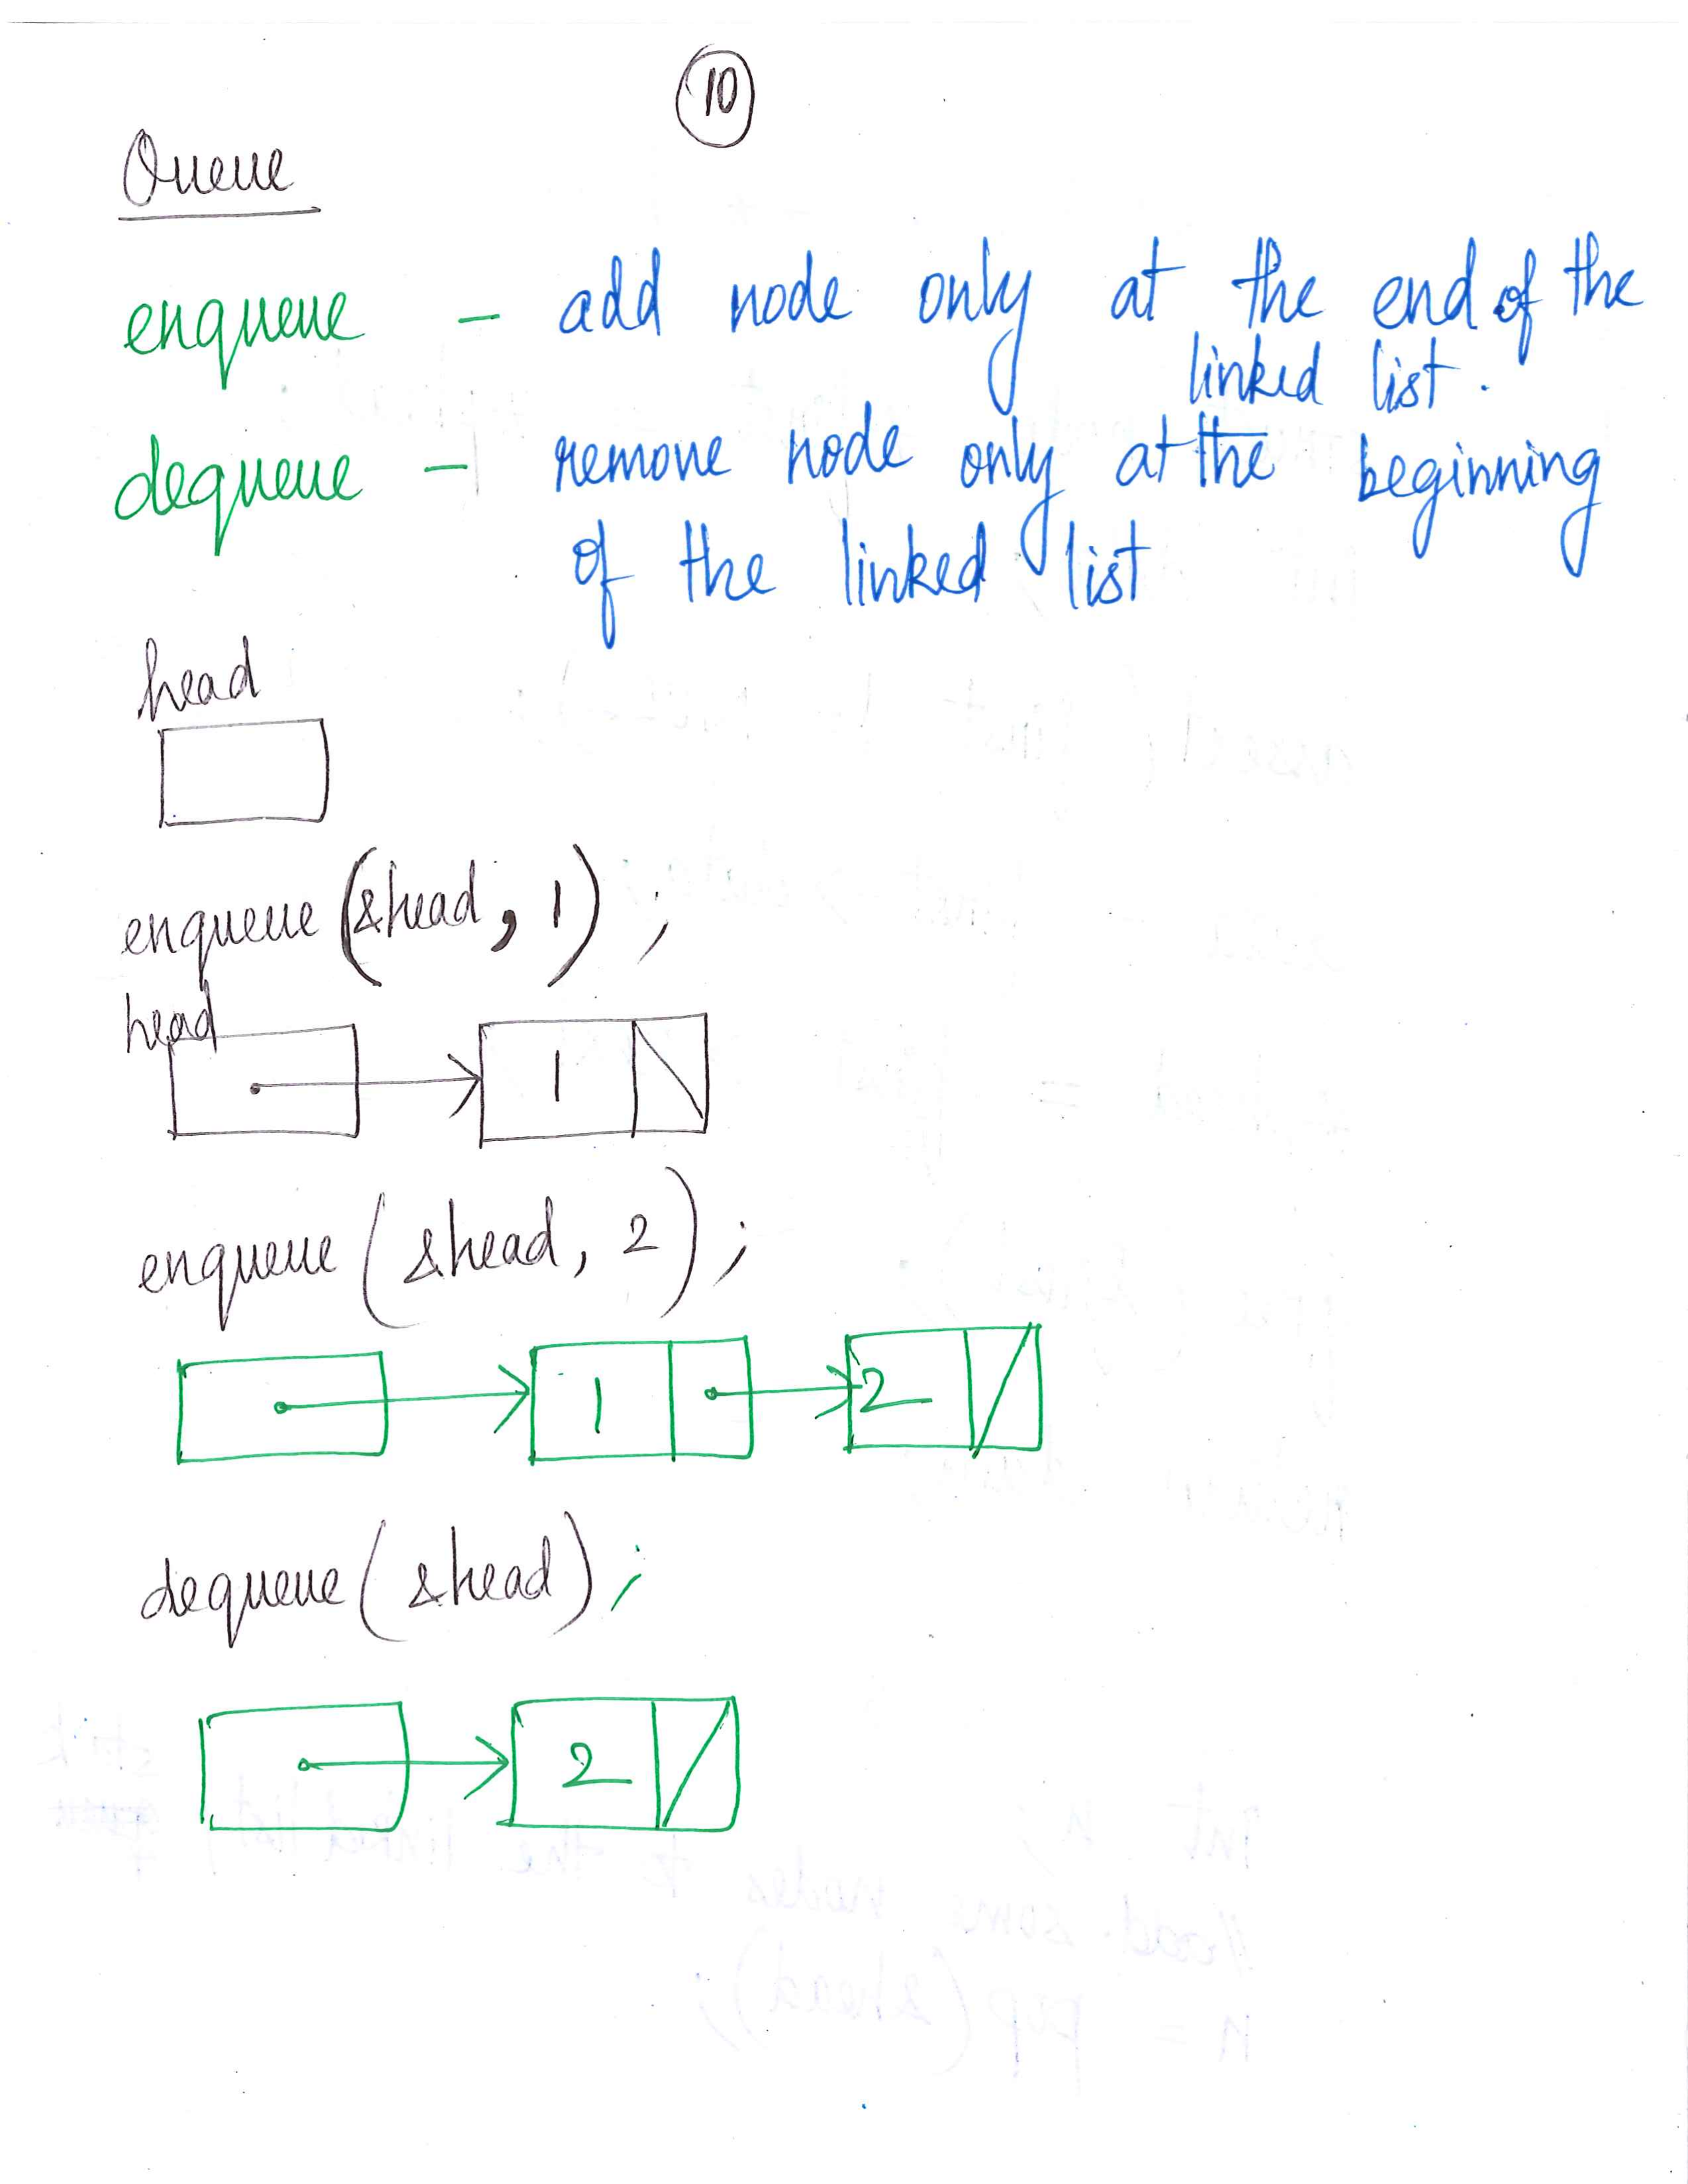 10
Queue
enqueue - add node only at the end of the
linked list.
dequeue - remove node only at the beginning
of the linked list
head
enqueue(&head, 1);
head
1
enqueue(&head, 2);
1 2
dequeue(&head);
2